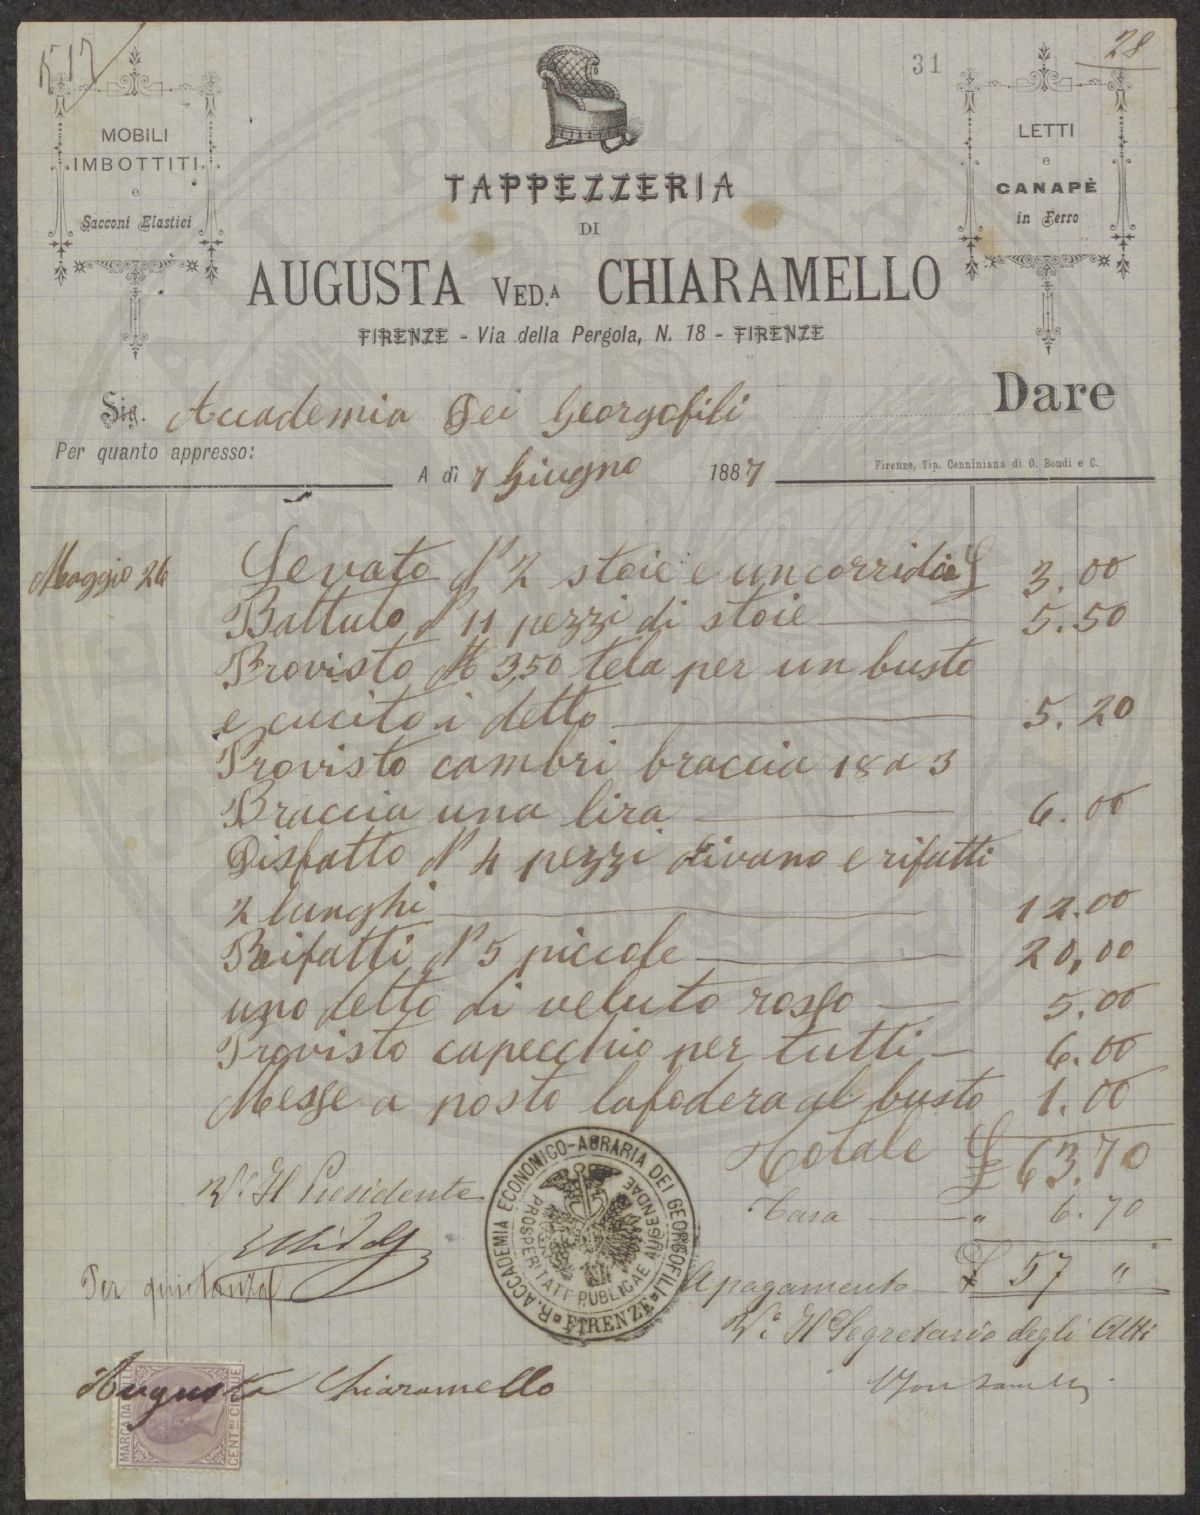 517
31
28
MOBILI
IMBOTTITI
e
Sacconi Elastici
LETTI
e
CANAPÈ
in Ferro
TAPPEZZERIA
DI
AUGUSTA VED.A CHIARAMELLO
FIRENZE - Via della Pergola, N. 18 - FIRENZE
Sig. Accademia dei Georgofili Dare
Per quanto appresso:
A dì 7 Giugno 1887
Firenze, Tip. Cenniniana di O. Bondi e C.
Maggio 26 Levato N° 2 stoie e un corridoio £ 3.00
Battuto N° 11 pezzi di stoie 5.50
Provisto M 3,50 tela per un busto
e cucito i detto 5.20
Provisto cambri braccia 18 a 3
Braccia una lira 6.00
Disfatto N° 4 pezzi divano e rifatti
2 lunghi 12.00
Reifatti N° 5 piccole 20,00
uno detto di veluto rosso 5.00
Provisto capecchio per tutti 6.00
Messe a posto la fodera al busto 1.00
Totale £ 63.70
Tara " 6.70
A pagamento £ 57 "
V° Il Presidente
V° Il Segretario degli Atti
Per quietanza
R. ACCADEMIA ECONOMICO-AGRARIA DEI GEORGOFILI
FIRENZE
PROSPERITATI PUBLICAE AUGENDAE
Augusta Chiaramello
MARCA DA BOLLO
CENT.MI CINQUE